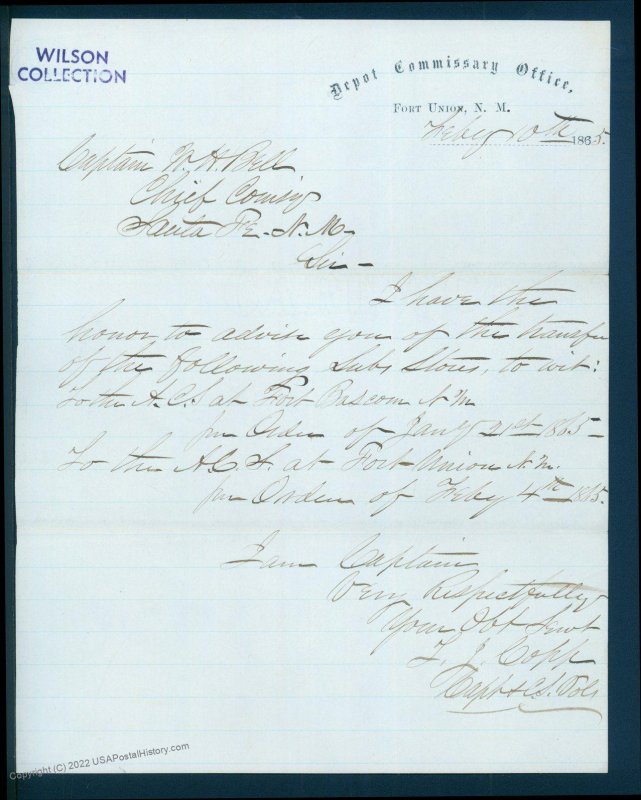 WILSON
COLLECTION
Depot Commissary Office,
FORT UNION, N. M.
Feby 10th 1865.
Captain W. H. Bell
Chief Comsy
Santa Fe. N.M.
Sir -
I have the
honor, to advise you of the transfer
of the following Subs Stores, to wit:
To the A.C.S. at Fort Bascom N.M
per Order of Jany 21st 1865 -
To the A.C.S. at Fort Union N.M.
per Orders of Feby 4th 1865.
I am Captain
Very Respectfully
Your Obt Servt
Copp
Capt & C.S. Vols
Copyright (C) 2022 USAPostalHistory.com